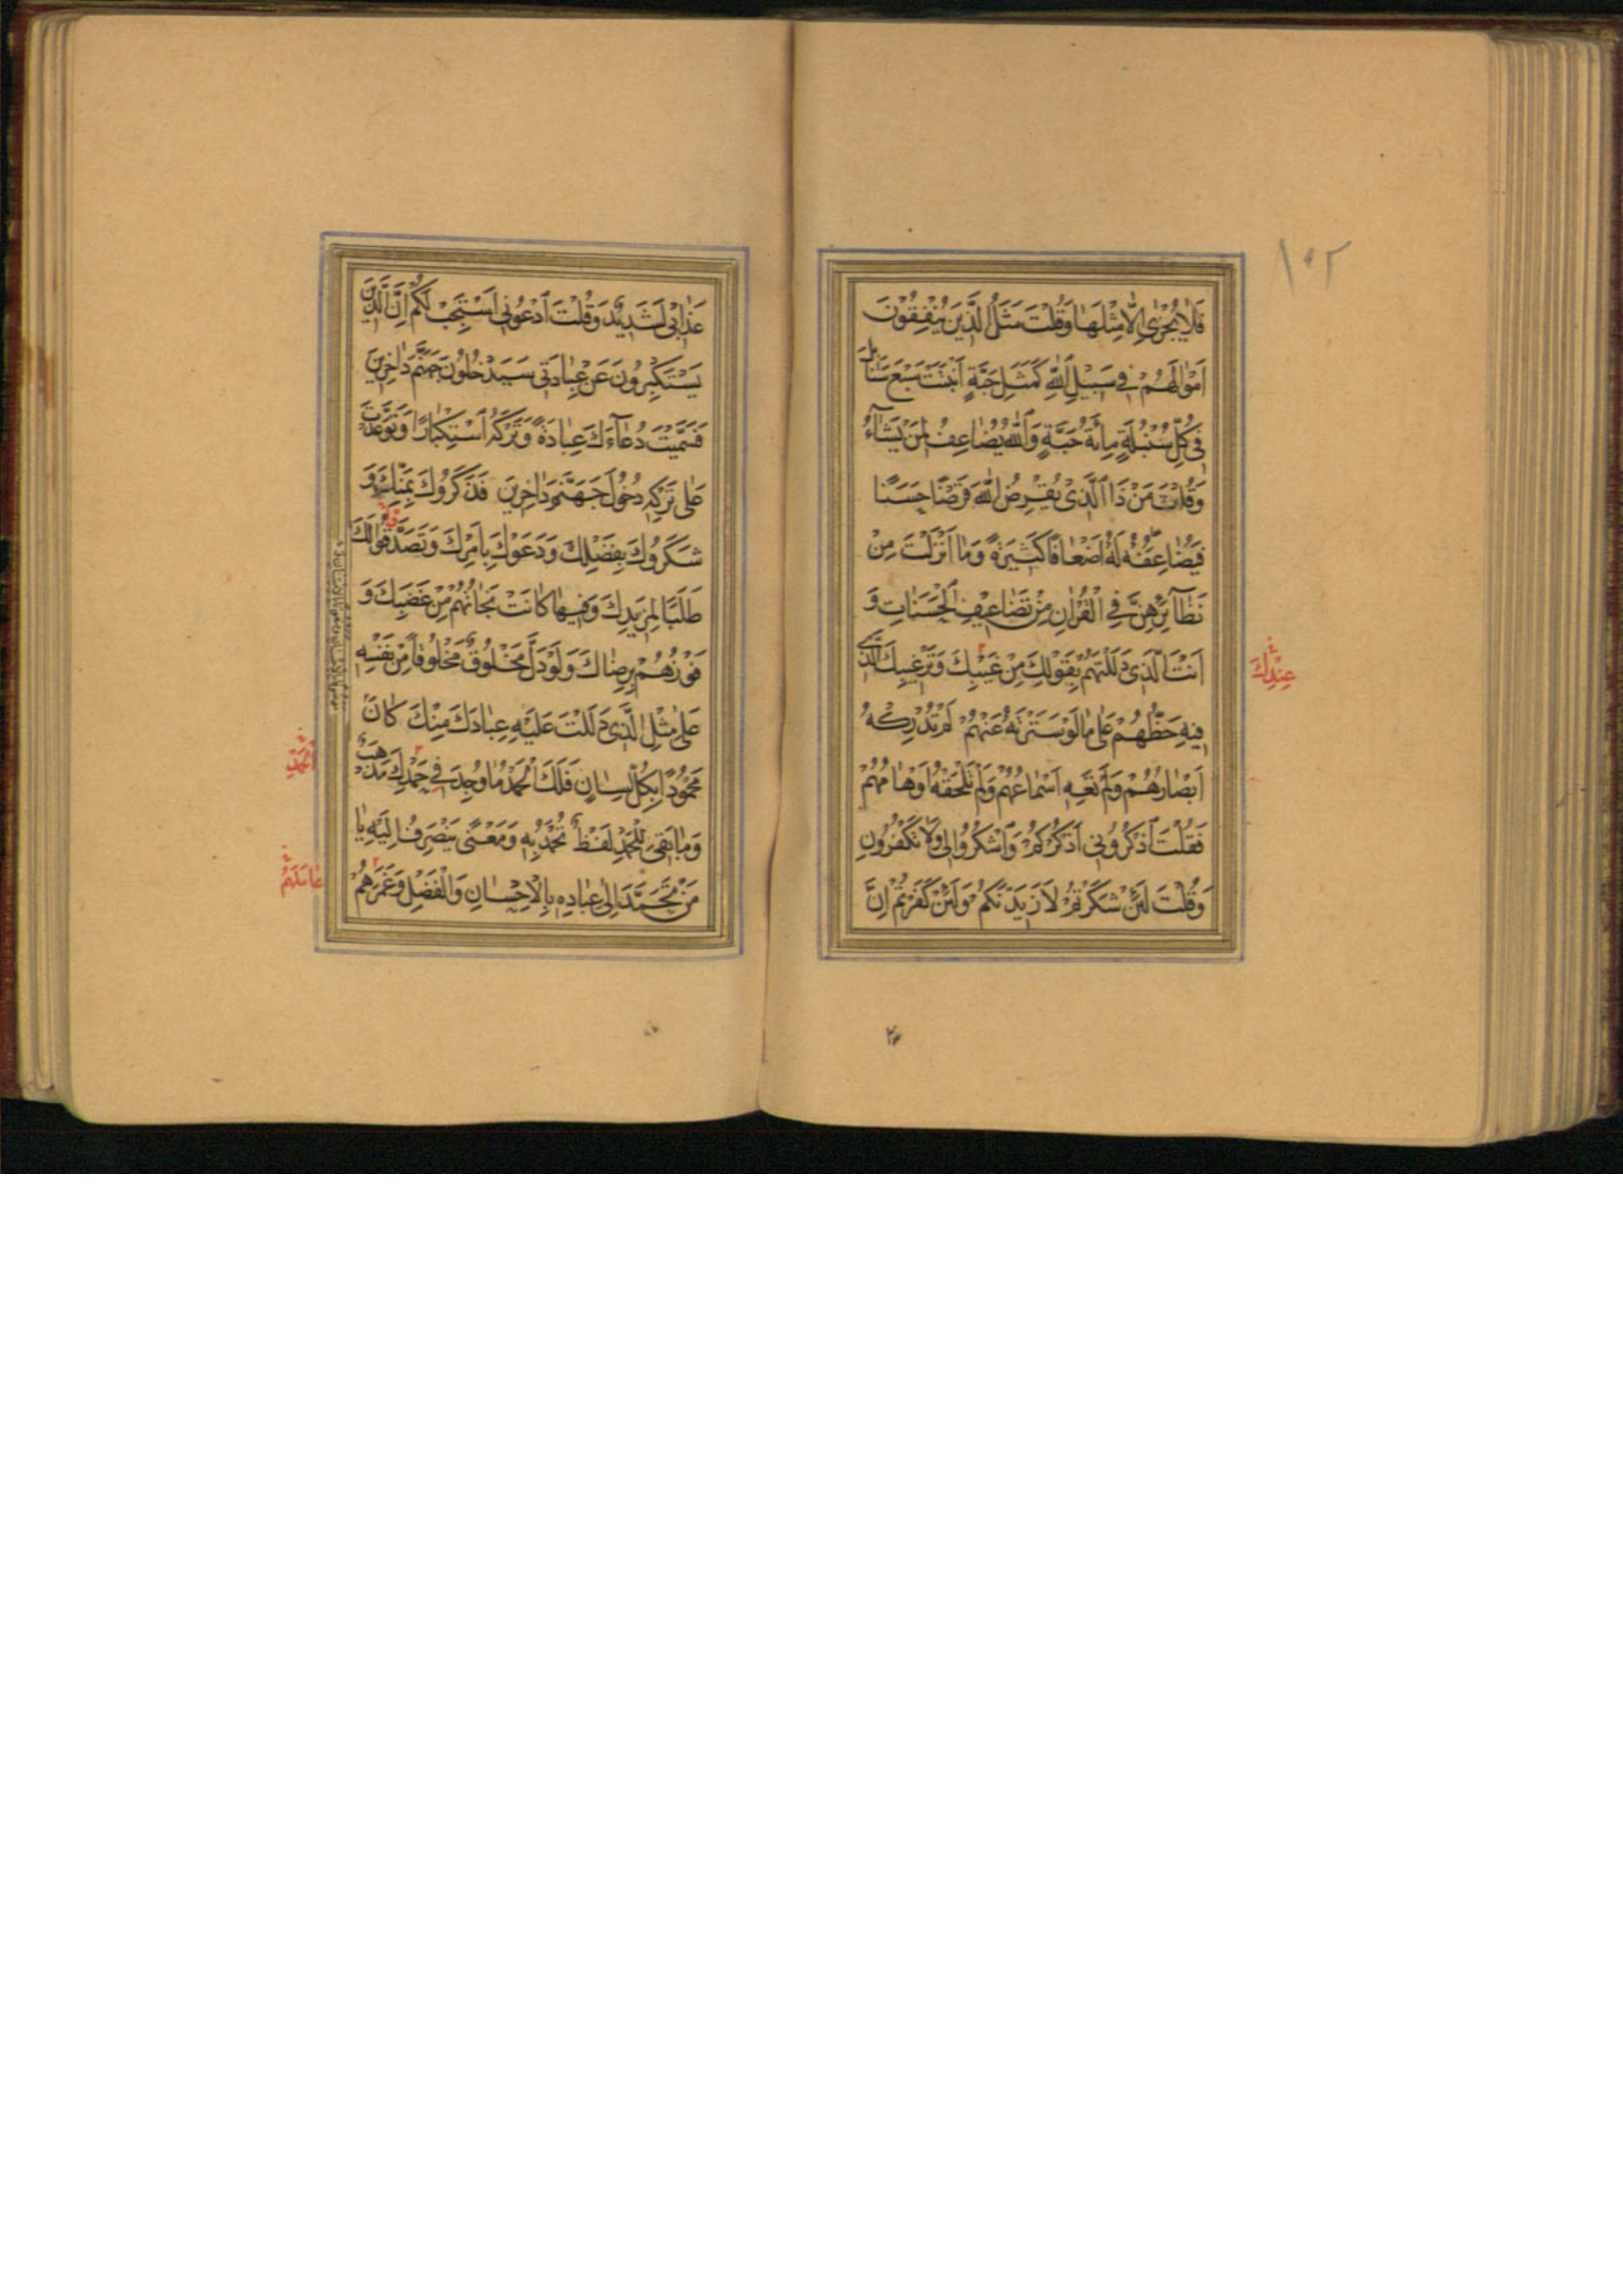 ١٠٢
فَلَا يُجْزَىٰ إِلَّا مِثْلَهَا وَقُلْتَ مَثَلُ الَّذِينَ يُنْفِقُونَ
أَمْوَالَهُمْ فِي سَبِيلِ اللَّهِ كَمَثَلِ حَبَّةٍ أَنْبَتَتْ سَبْعَ سَنَابِلَ
فِي كُلِّ سُنْبُلَةٍ مِائَةُ حَبَّةٍ وَاللَّهُ يُضَاعِفُ لِمَنْ يَشَاءُ
وَقُلْتَ مَنْ ذَا الَّذِي يُقْرِضُ اللَّهَ قَرْضًا حَسَنًا
فَيُضَاعِفَهُ لَهُ أَضْعَافًا كَثِيرَةً وَمَا أَنْزَلْتَ مِنْ
نَظَائِرِهِنَّ فِي الْقُرْآنِ مِنْ تَضَاعِيفِ الْحَسَنَاتِ وَ
أَنْتَ الَّذِي دَلَلْتَهُمْ بِقَوْلِكَ مِنْ غَيْبِكَ وَتَرْغِيبِكَ الَّذِي
عِنْدِكَ
فِيهِ حَظُّهُمْ عَلَىٰ مَا لَوْ سَتَرْتَهُ عَنْهُمْ لَمْ تُدْرِكْهُ
أَبْصَارُهُمْ وَلَمْ تَعِهِ أَسْمَاعُهُمْ وَلَمْ تَلْحَقْهُ أَوْهَامُهُمْ
فَقُلْتَ اذْكُرُونِي أَذْكُرْكُمْ وَاشْكُرُوا لِي وَلَا تَكْفُرُونِ
وَقُلْتَ لَئِنْ شَكَرْتُمْ لَأَزِيدَنَّكُمْ وَلَئِنْ كَفَرْتُمْ إِنَّ
عَذَابِي لَشَدِيدٌ وَقُلْتَ ادْعُونِي أَسْتَجِبْ لَكُمْ إِنَّ الَّذِينَ
يَسْتَكْبِرُونَ عَنْ عِبَادَتِي سَيَدْخُلُونَ جَهَنَّمَ دَاخِرِينَ
فَسَمَّيْتَ دُعَاءَكَ عِبَادَةً وَتَرْكَهُ اسْتِكْبَارًا وَتَوَعَّدْتَ
عَلَىٰ تَرْكِهِ دُخُولَ جَهَنَّمَ دَاخِرِينَ فَذَكَرُوكَ بِمَنِّكَ وَ
شَكَرُوكَ بِفَضْلِكَ وَدَعَوْكَ بِأَمْرِكَ وَتَصَدَّقُوا لَكَ
طَلَبًا لِمَزِيدِكَ وَفِيهَا كَانَتْ نَجَاتُهُمْ مِنْ غَضَبِكَ وَ
فَوْزُهُمْ بِرِضَاكَ وَلَوْ دَلَّ مَخْلُوقٌ مَخْلُوقًا مِنْ نَفْسِهِ
عَلَىٰ مِثْلِ الَّذِي دَلَلْتَ عَلَيْهِ عِبَادَكَ مِنْكَ كَانَ
مَحْمُودًا بِكُلِّ لِسَانٍ فَلَكَ الْحَمْدُ مَا وُجِدَ فِي حَمْدِكَ مَذْهَبٌ
وَمَا بَقِيَ لِلْحَمْدِ لَفْظٌ تُحْمَدُ بِهِ وَمَعْنًى يَنْصَرِفُ إِلَيْهِ يَا
مَنْ تَحَمَّدَ إِلَىٰ عِبَادِهِ بِالْإِحْسَانِ وَالْفَضْلِ وَغَمَرَهُمْ